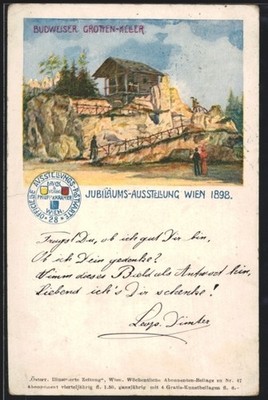 BUDWEISER GROTTEN-KELLER
JUBILÄUMS-AUSSTELLUNG WIEN 1898.
OFFICIELLE AUSSTELLUNGS-POSTKARTE
PHILIPP & KRAMER
WIEN
28
Frugst Du, ob ich gut Dir bin,
Ob ich Dein gedenke?
Nimm dieses Bild als Antwort hin,
Liebend ich's Dir schenke!
"Oesterr. Illustrirte Zeitung", Wien, Wöchentliche Abonnenten-Beilage zu Nr. 42
Abonnement vierteljährig fl. 1.50, ganzjährig mit 4 Gratis-Kunstbeilagen fl. 6.—